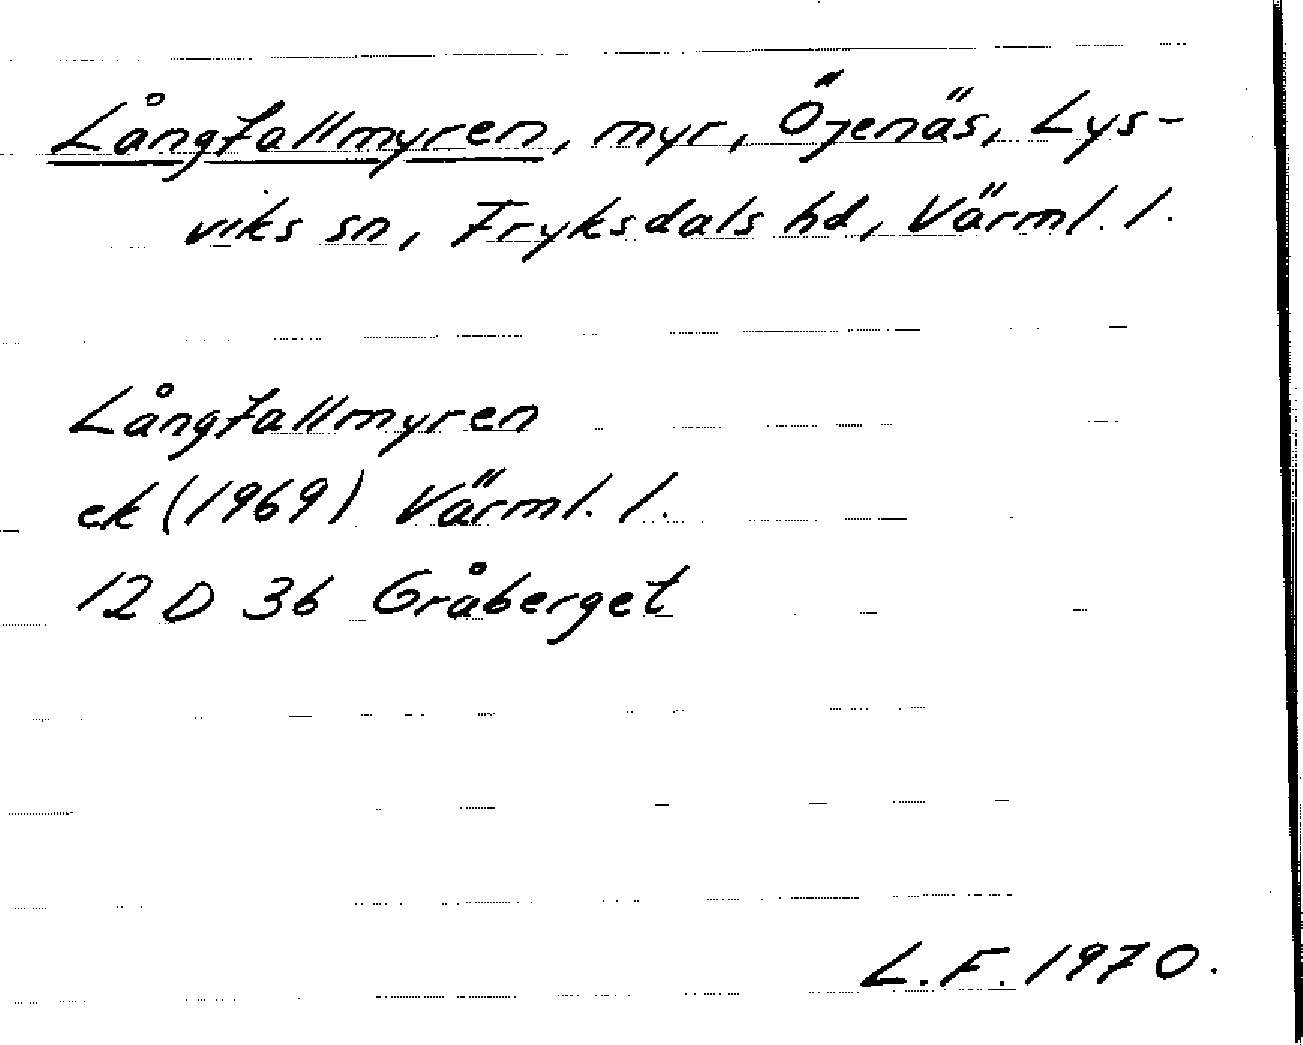 Långfallmyren, myr, Öjenäs, Lys-
viks sn, Fryksdals hd, Värml. l.
Långfallmyren
ek (1969) Värml. l.
12 D 3b Gråberget
L.F. 1970.